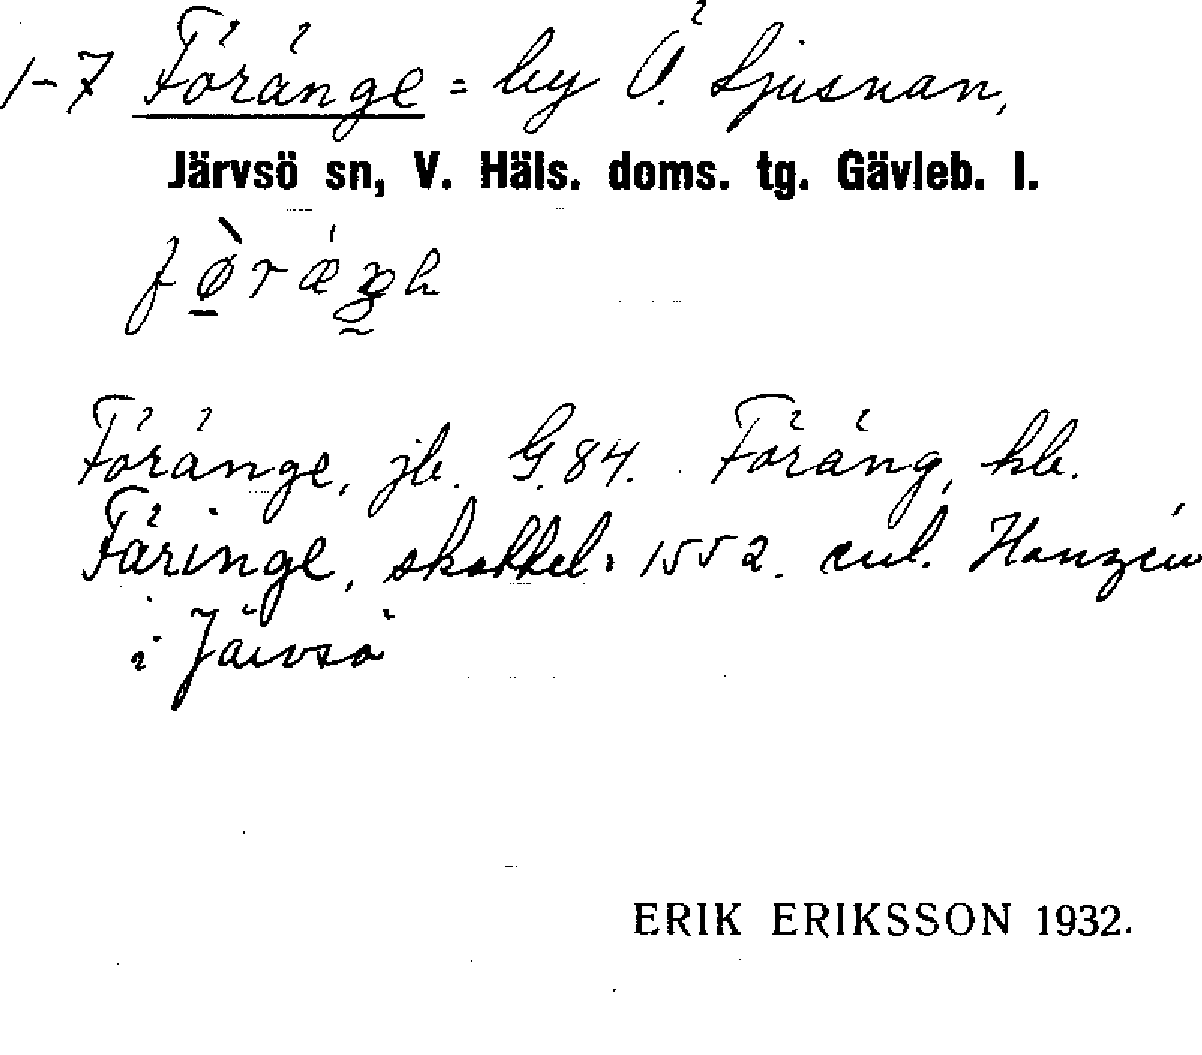 1-7 Föränge = by Ö. Ljusnan,
Järvsö sn, V. Häls. doms. tg. Gävleb. l.
Föränge, jb. G.84. Föräng, hb.
Färinge, skattel. 1552. enl. Hanzén
i Järvsö
ERIK ERIKSSON 1932.